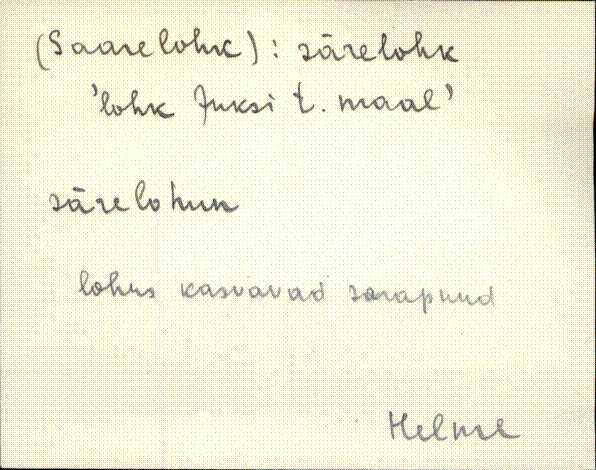 (Saarelohk): särelohk
'lohk Juksi t. maal'
särelohun
lohus kasvavad sarapuud
Helme